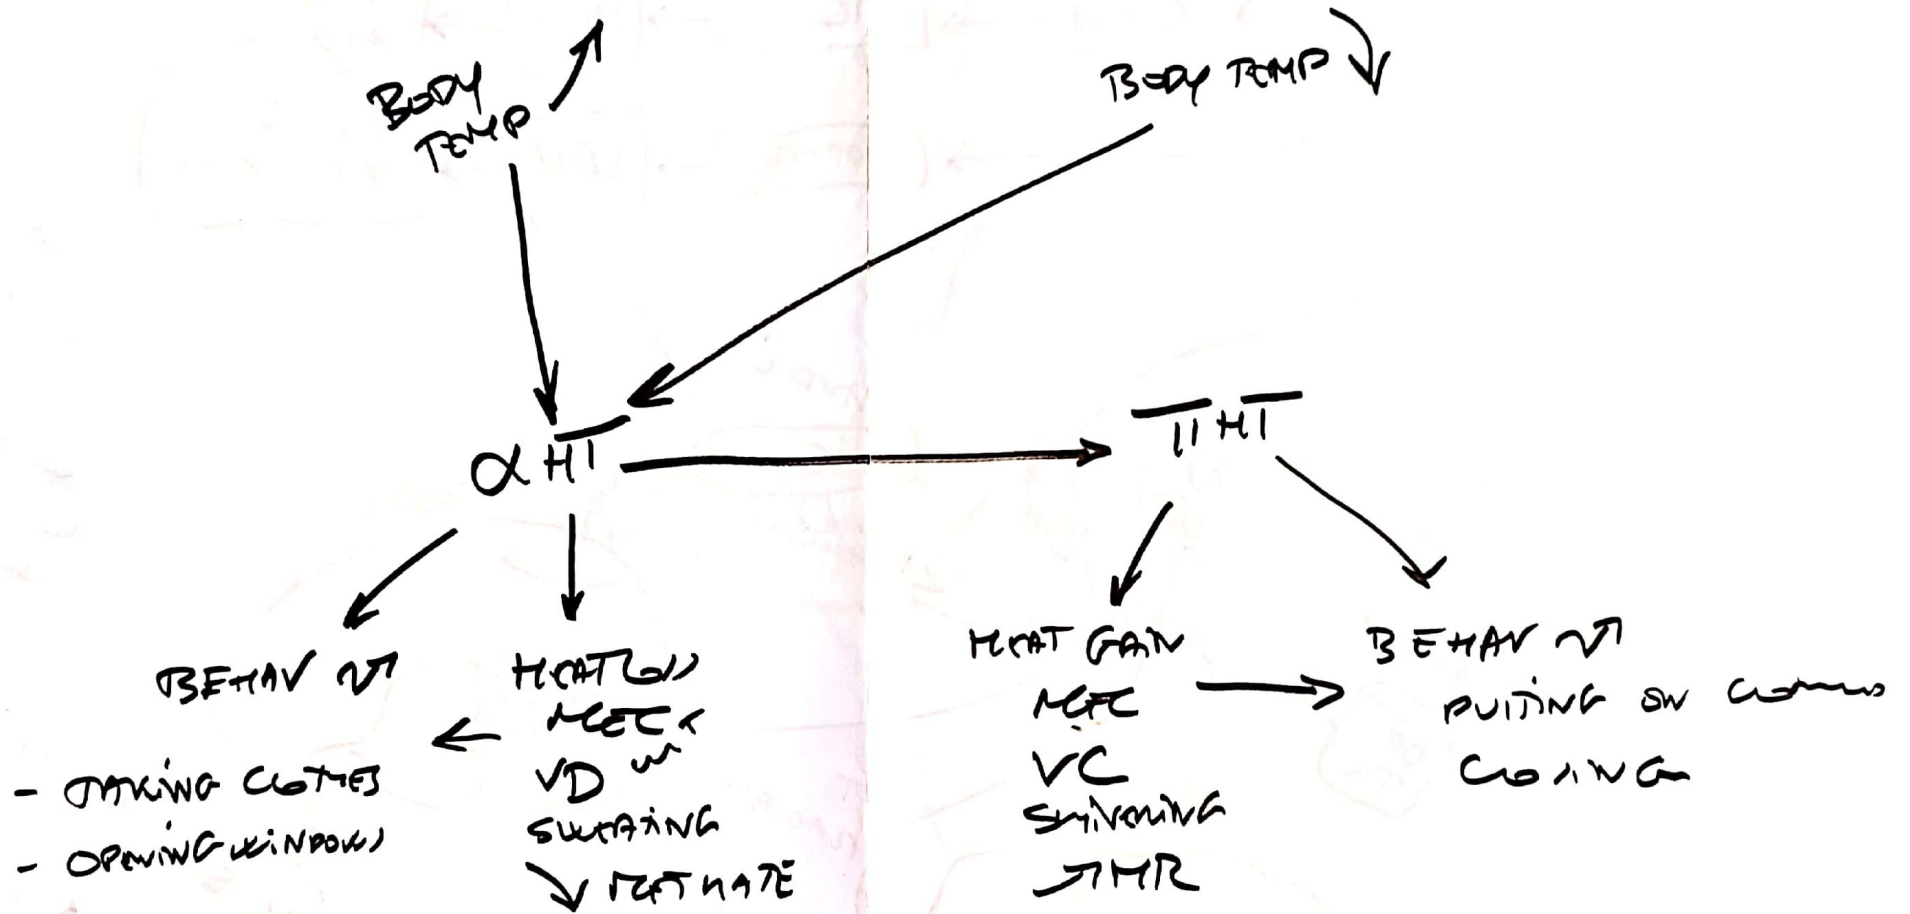 BODY
TEMP ↗
BODY TEMP ↘
α HT
π HT
BEHAV
- TAKING CLOTHES
- OPENING WINDOWS
HEAT LOSS
MEC
VD
SWEATING
↘ MET RATE
HEAT GAIN
MEC
VC
SHIVERING
↗ MR
BEHAV
PUTING ON CLOTHES
CLOSING